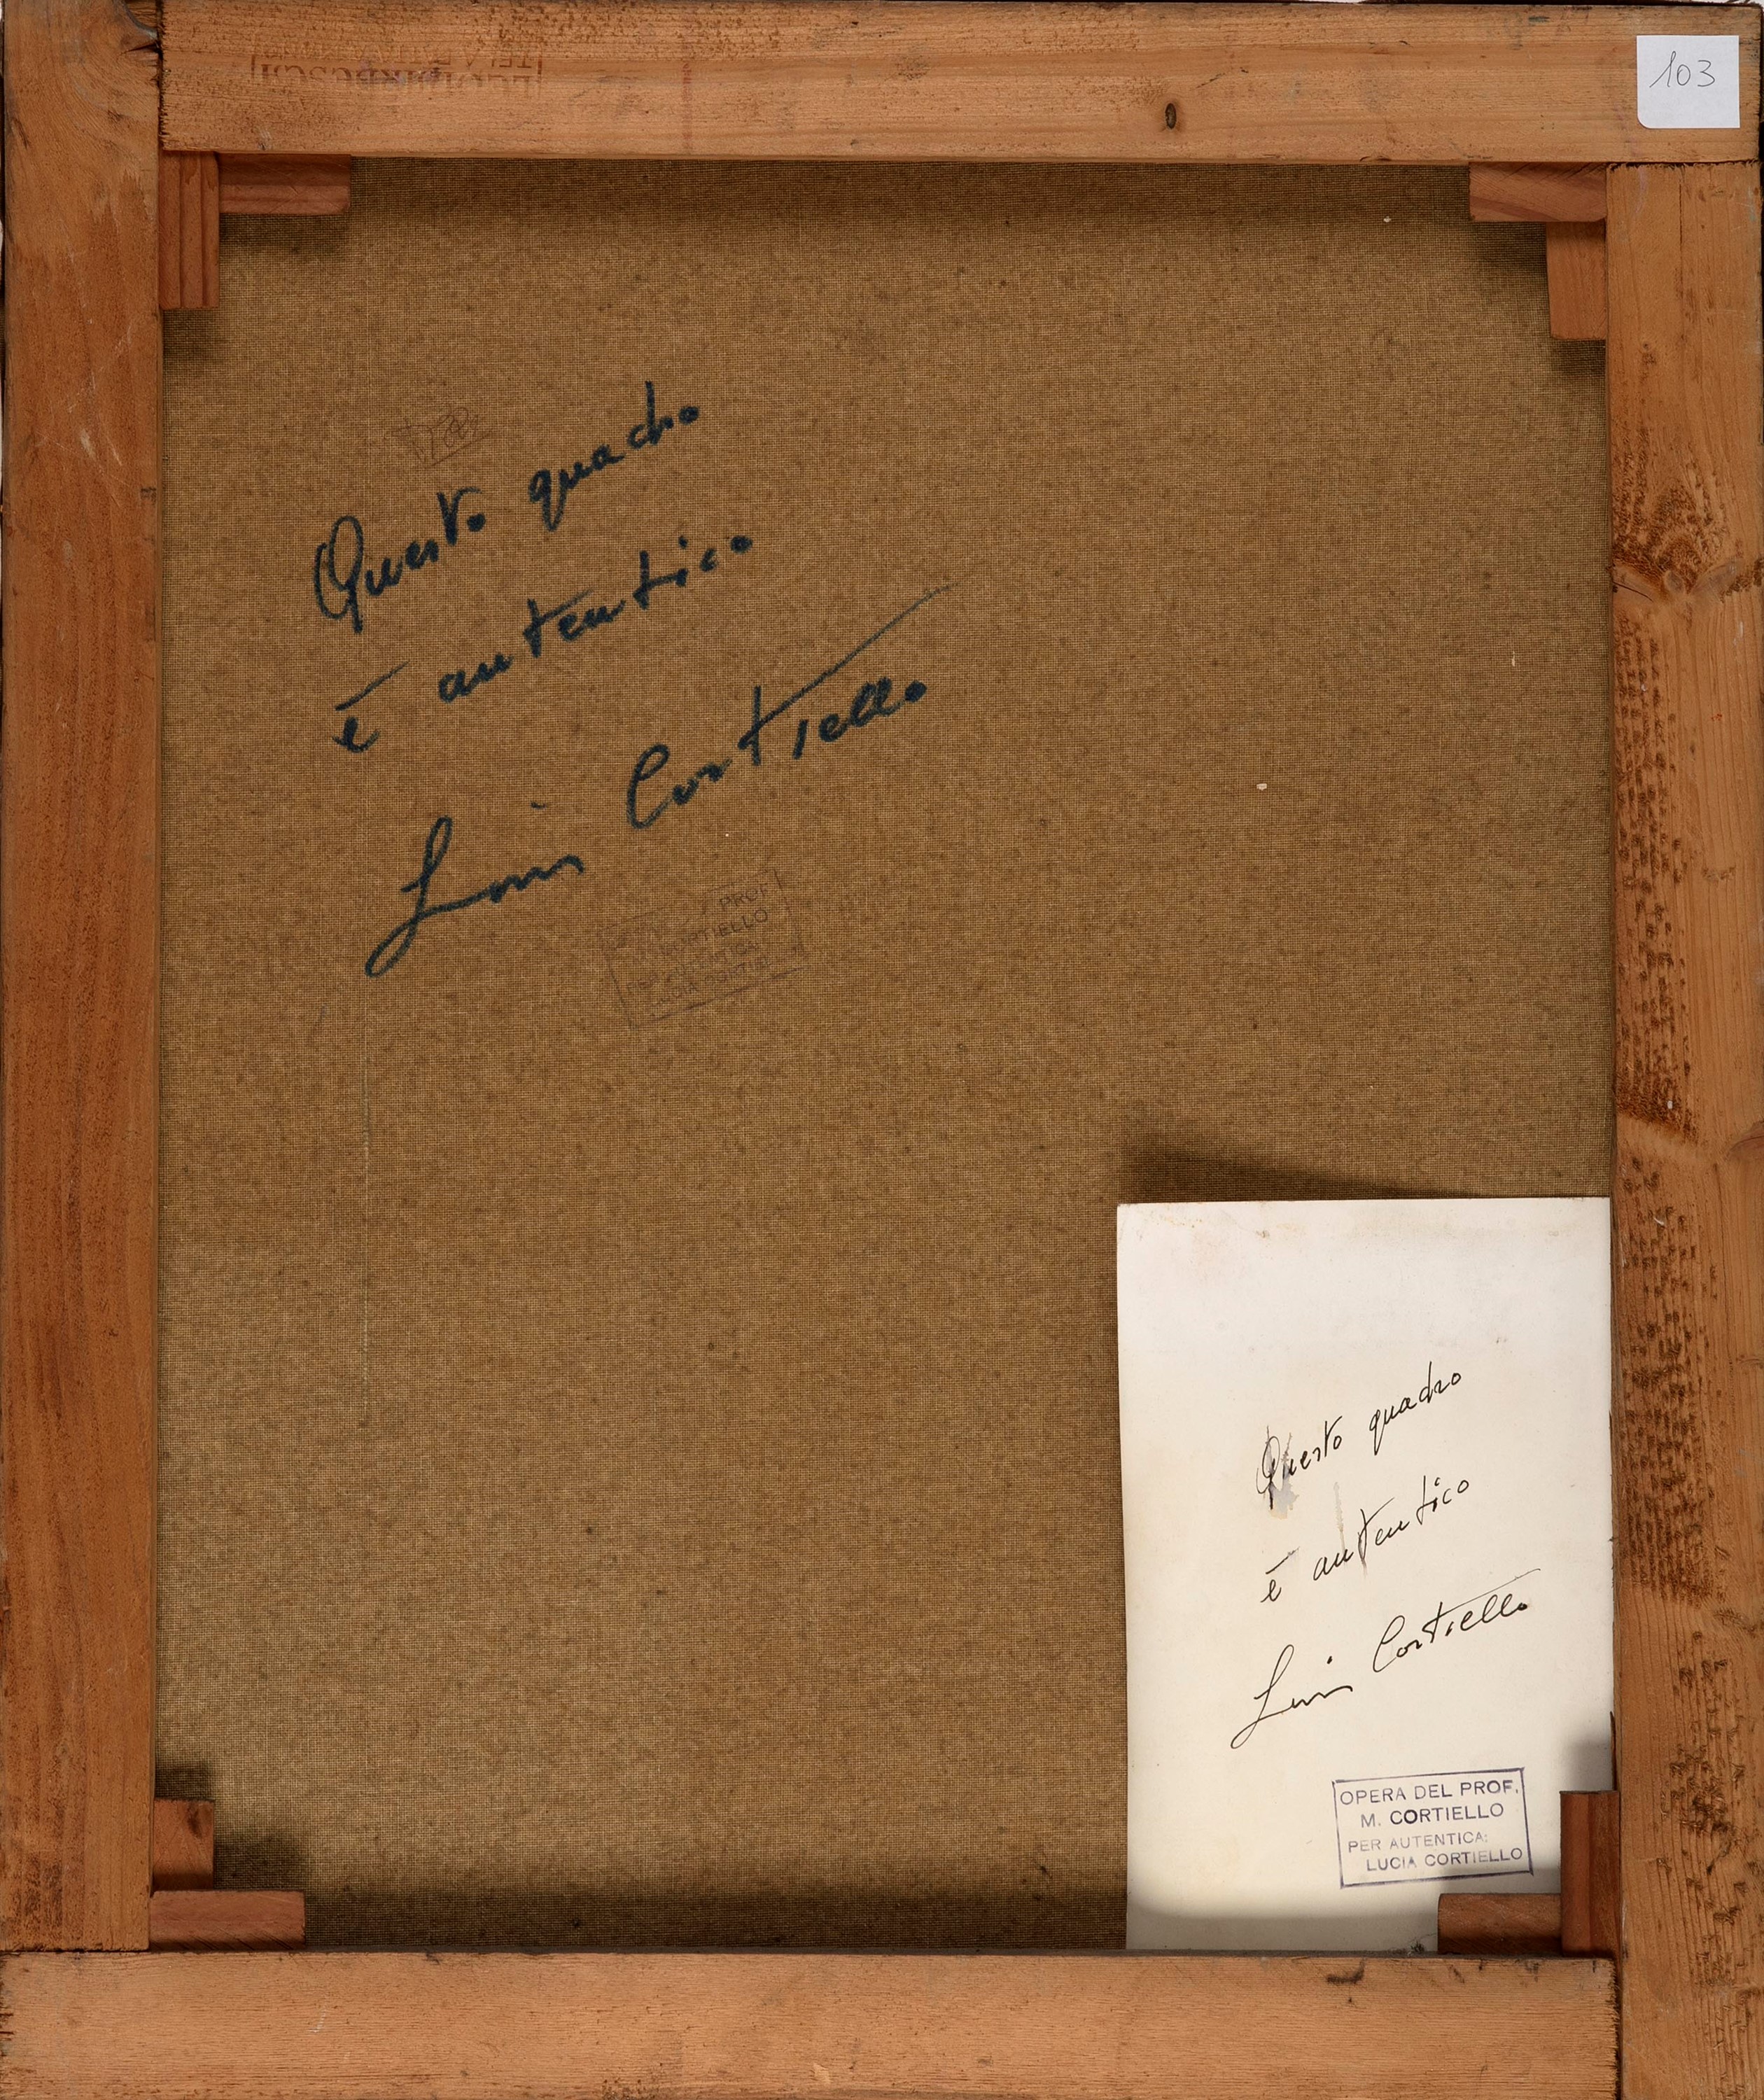 103
Questo quadro
è autentico
Luis Cortiello
PROF.
CORTIELLO
PER AUTENTICA
LUCIA
Questo quadro
è autentico
Luis Cortiello
OPERA DEL PROF.
M. CORTIELLO
PER AUTENTICA:
LUCIA CORTIELLO